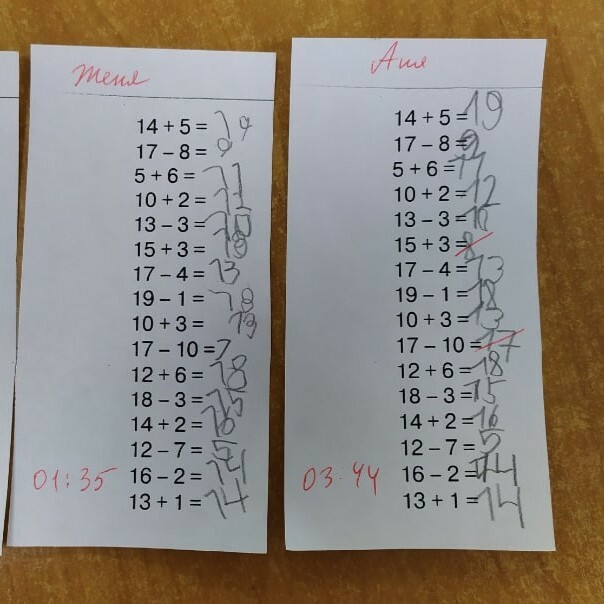 Женя
14 + 5 = 19
17 – 8 = 9
5 + 6 = 11
10 + 2 = 12
13 – 3 = 10
15 + 3 = 18
17 – 4 = 13
19 – 1 = 18
10 + 3 = 13
17 – 10 = 7
12 + 6 = 18
18 – 3 = 15
14 + 2 = 16
12 – 7 = 5
16 – 2 = 14
13 + 1 = 14
01:35
Аня
14 + 5 = 19
17 – 8 = 9
5 + 6 = 11
10 + 2 = 12
13 – 3 = 10
15 + 3 = 8
17 – 4 = 13
19 – 1 = 18
10 + 3 = 13
17 – 10 = 17
12 + 6 = 18
18 – 3 = 15
14 + 2 = 16
12 – 7 = 5
16 – 2 = 14
13 + 1 = 14
03:44